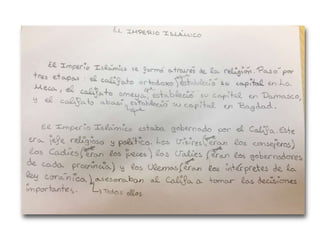 EL IMPERIO ISLÁMICO
El Imperio Islámico se formó através de la religión. Pasó por
tres etapas: el califato ortodoxo estableció su capital en La
Meca, el califato omeya, estableció su capital en Damasco,
y el califato abasí, estableció su capital en Bagdad.
El Imperio Islámico estaba gobernado por el Califa. Este
era jefe religioso y político. Los Visires (eran los consejeros)
los Cadíes (eran los jueces) los Valíes (eran los gobernadores
de cada provincia) y los Ulemas (eran los intérpretes de la
ley coránica) asesoraban al Califa a tomar las decisiones
importantes. Todos ellos